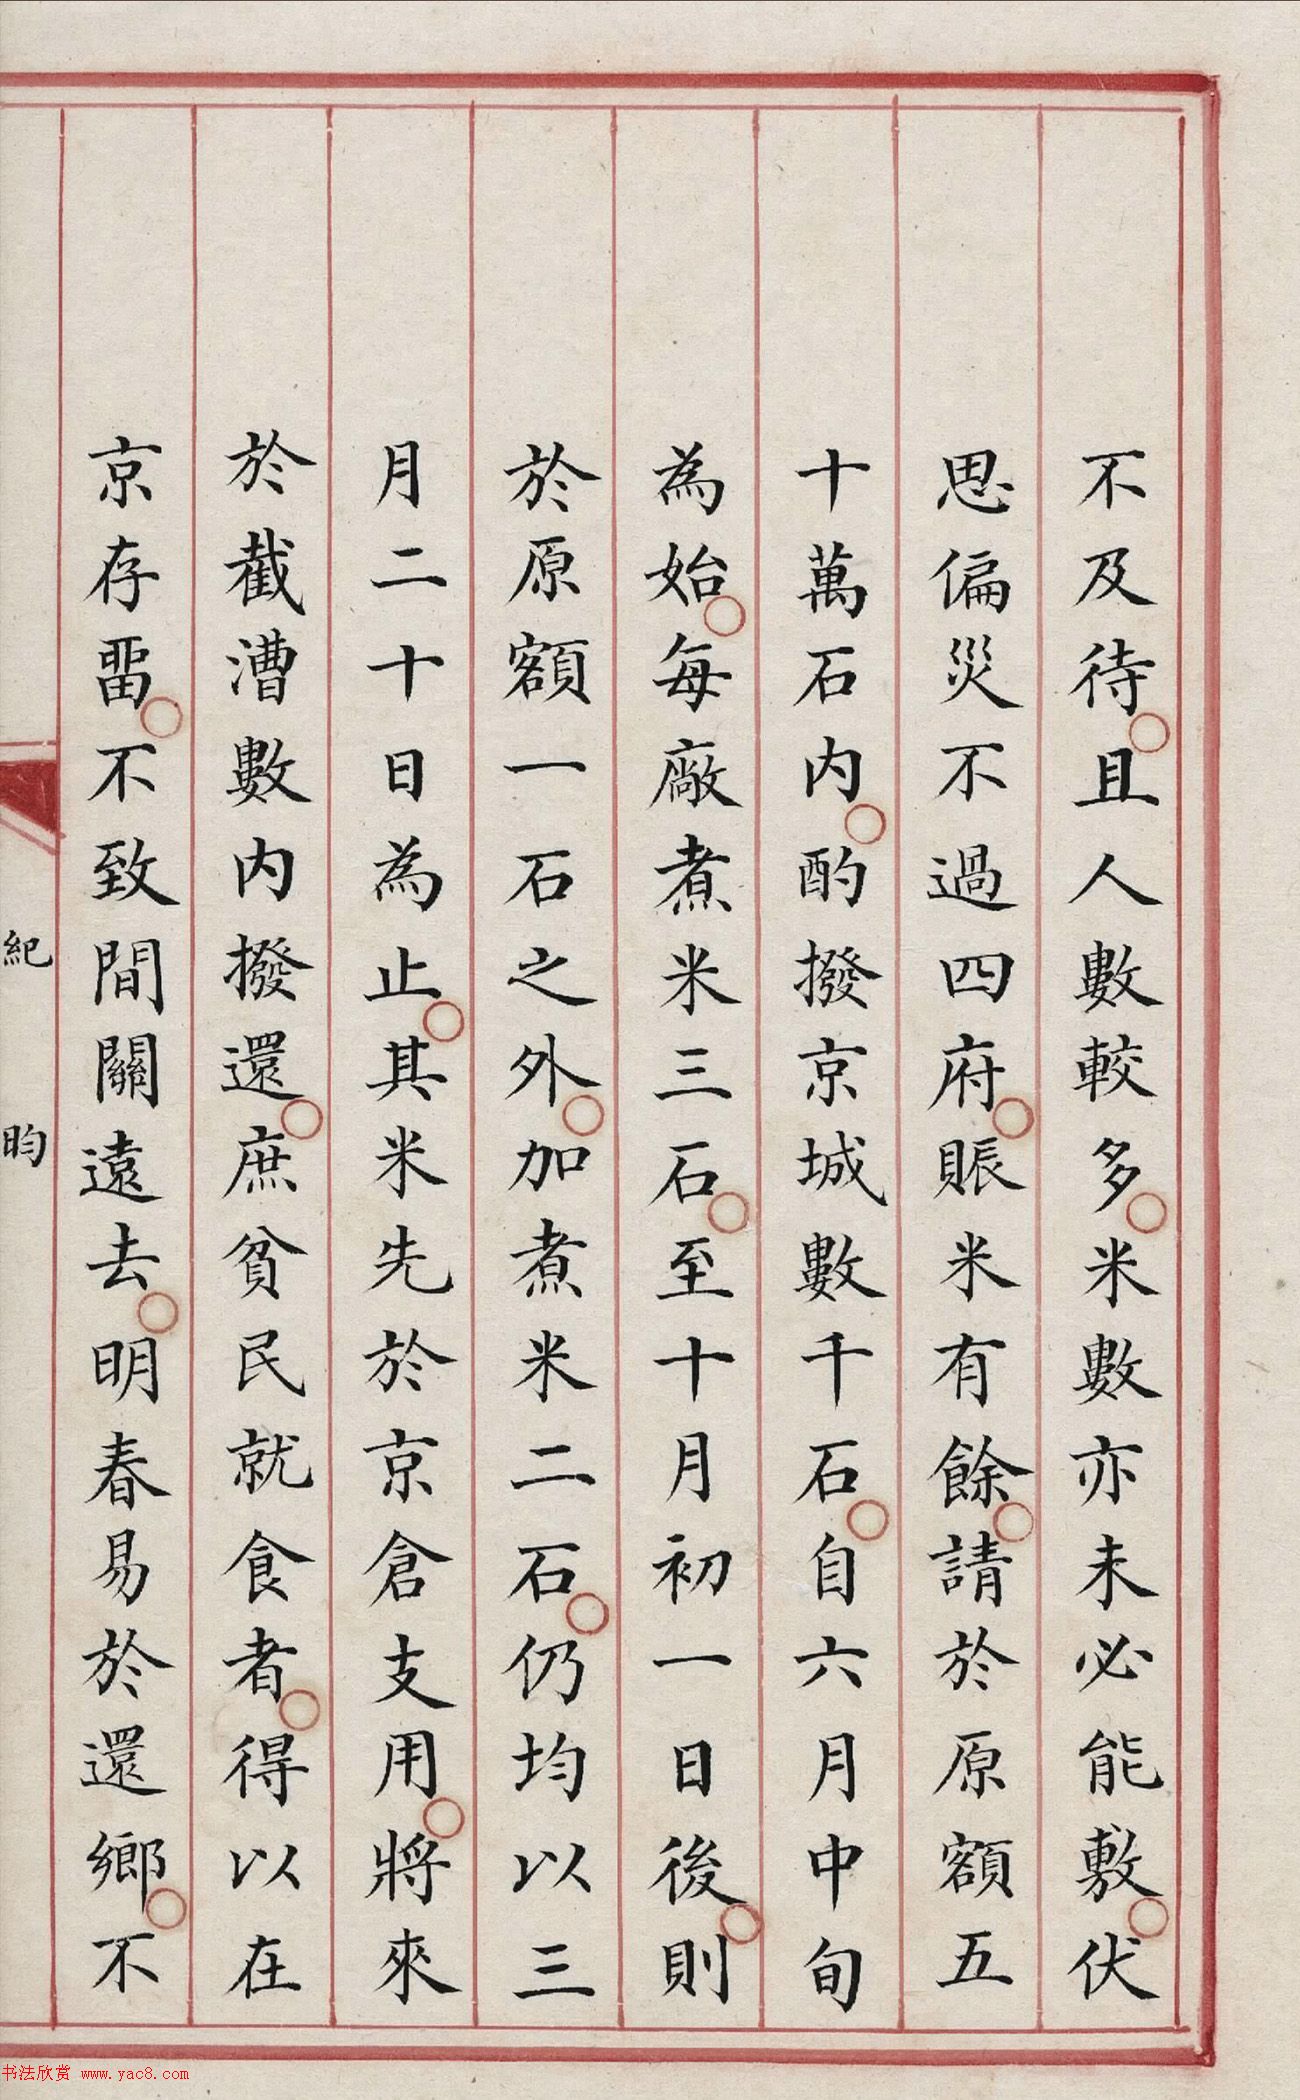 不及待○且人數較多○米數亦未必能敷○伏
思偏災不過四府○賑米有餘○請於原額五
十萬石內○酌撥京城數千石○自六月中旬
為始○每廠煮米三石○至十月初一日後○則
於原額一石之外○加煮米二石○仍均以三
月二十日為止○其米先於京倉支用○將來
於截漕數內撥還○庶貧民就食者○得以在
京存畱○不致間關遠去○明春易於還鄉○不
紀昀
书法欣赏 www.yac8.com